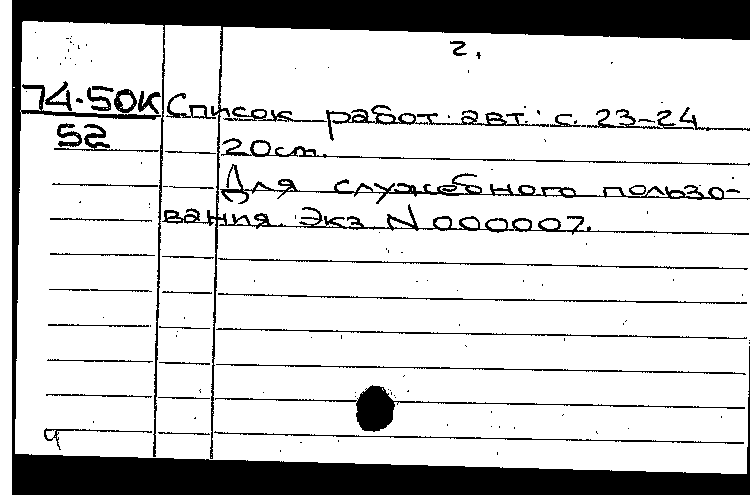 2.
74-50К Список работ авт.: с. 23-24
52 20см.
Для служебного пользо-
вания. Экз N 000007.
4